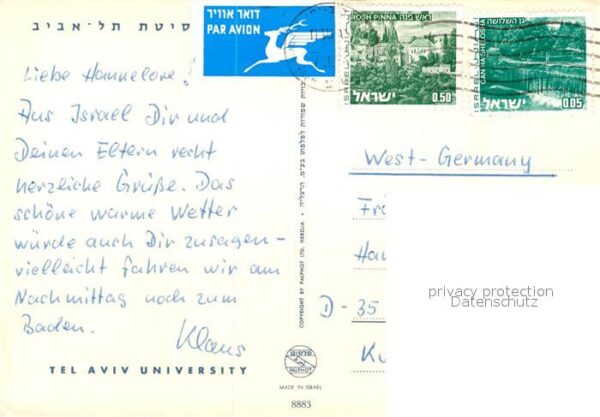 סיטת תל-אביב
דואר אוויר
PAR AVION
ראש פנה ROSH PINNA
ISRAEL
ישראל 0.50
גן השלושה
GAN HASHELOSHA
ISRAEL
ישראל 0.05
Liebe Hannelore,
Aus Israel Dir und
Deinen Eltern recht
herzliche Grüße. Das
schöne warme Wetter
würde auch Dir zusagen -
vielleicht fahren wir am
Nachmittag noch zum
Baden.
Klaus
TEL AVIV UNIVERSITY
COPYRIGHT BY PALPHOT LTD. HERZLIA • כל הזכויות שמורות לפלפוט בע"מ. הרצליה
פלפוט
PALPHOT
MADE IN ISRAEL
8883
West-Germany
Frä
Ha
D-35
K
privacy protection
Datenschutz